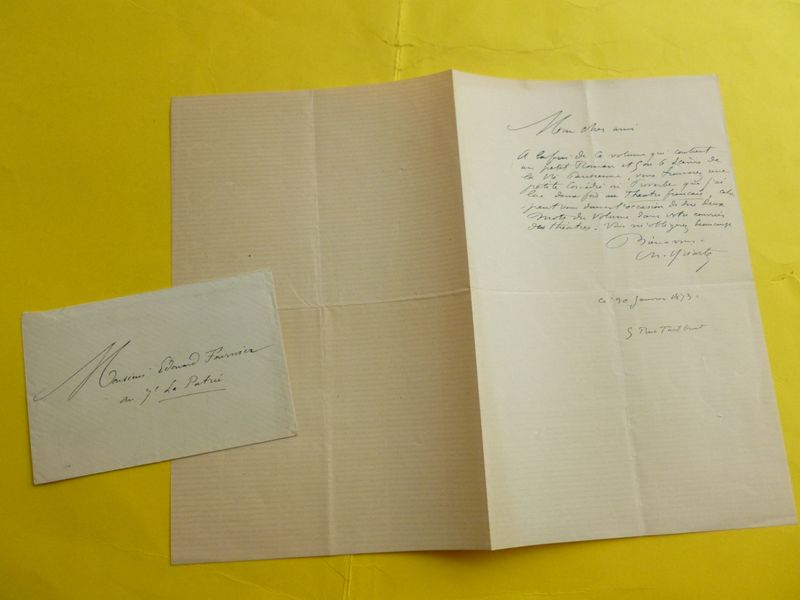 Mon cher ami
A la fin de ce volume qui contient
un petit Roman et 5 ou 6 scènes de
la Vie Parisienne, vous trouverez une
petite Comédie ou Proverbe que j'ai
lue deux fois au Théatre français, cela
peut vous donner l'occasion de dire deux
mots du volume dans votre courrier
des théatres. Vous m'obligerez beaucoup
Bien a vous.
Ch. Yriarte
Ce 30 Janvier 1873.
5 Rue Taitbout
Monsieur Edouard Fournier
au Jal La Patrie